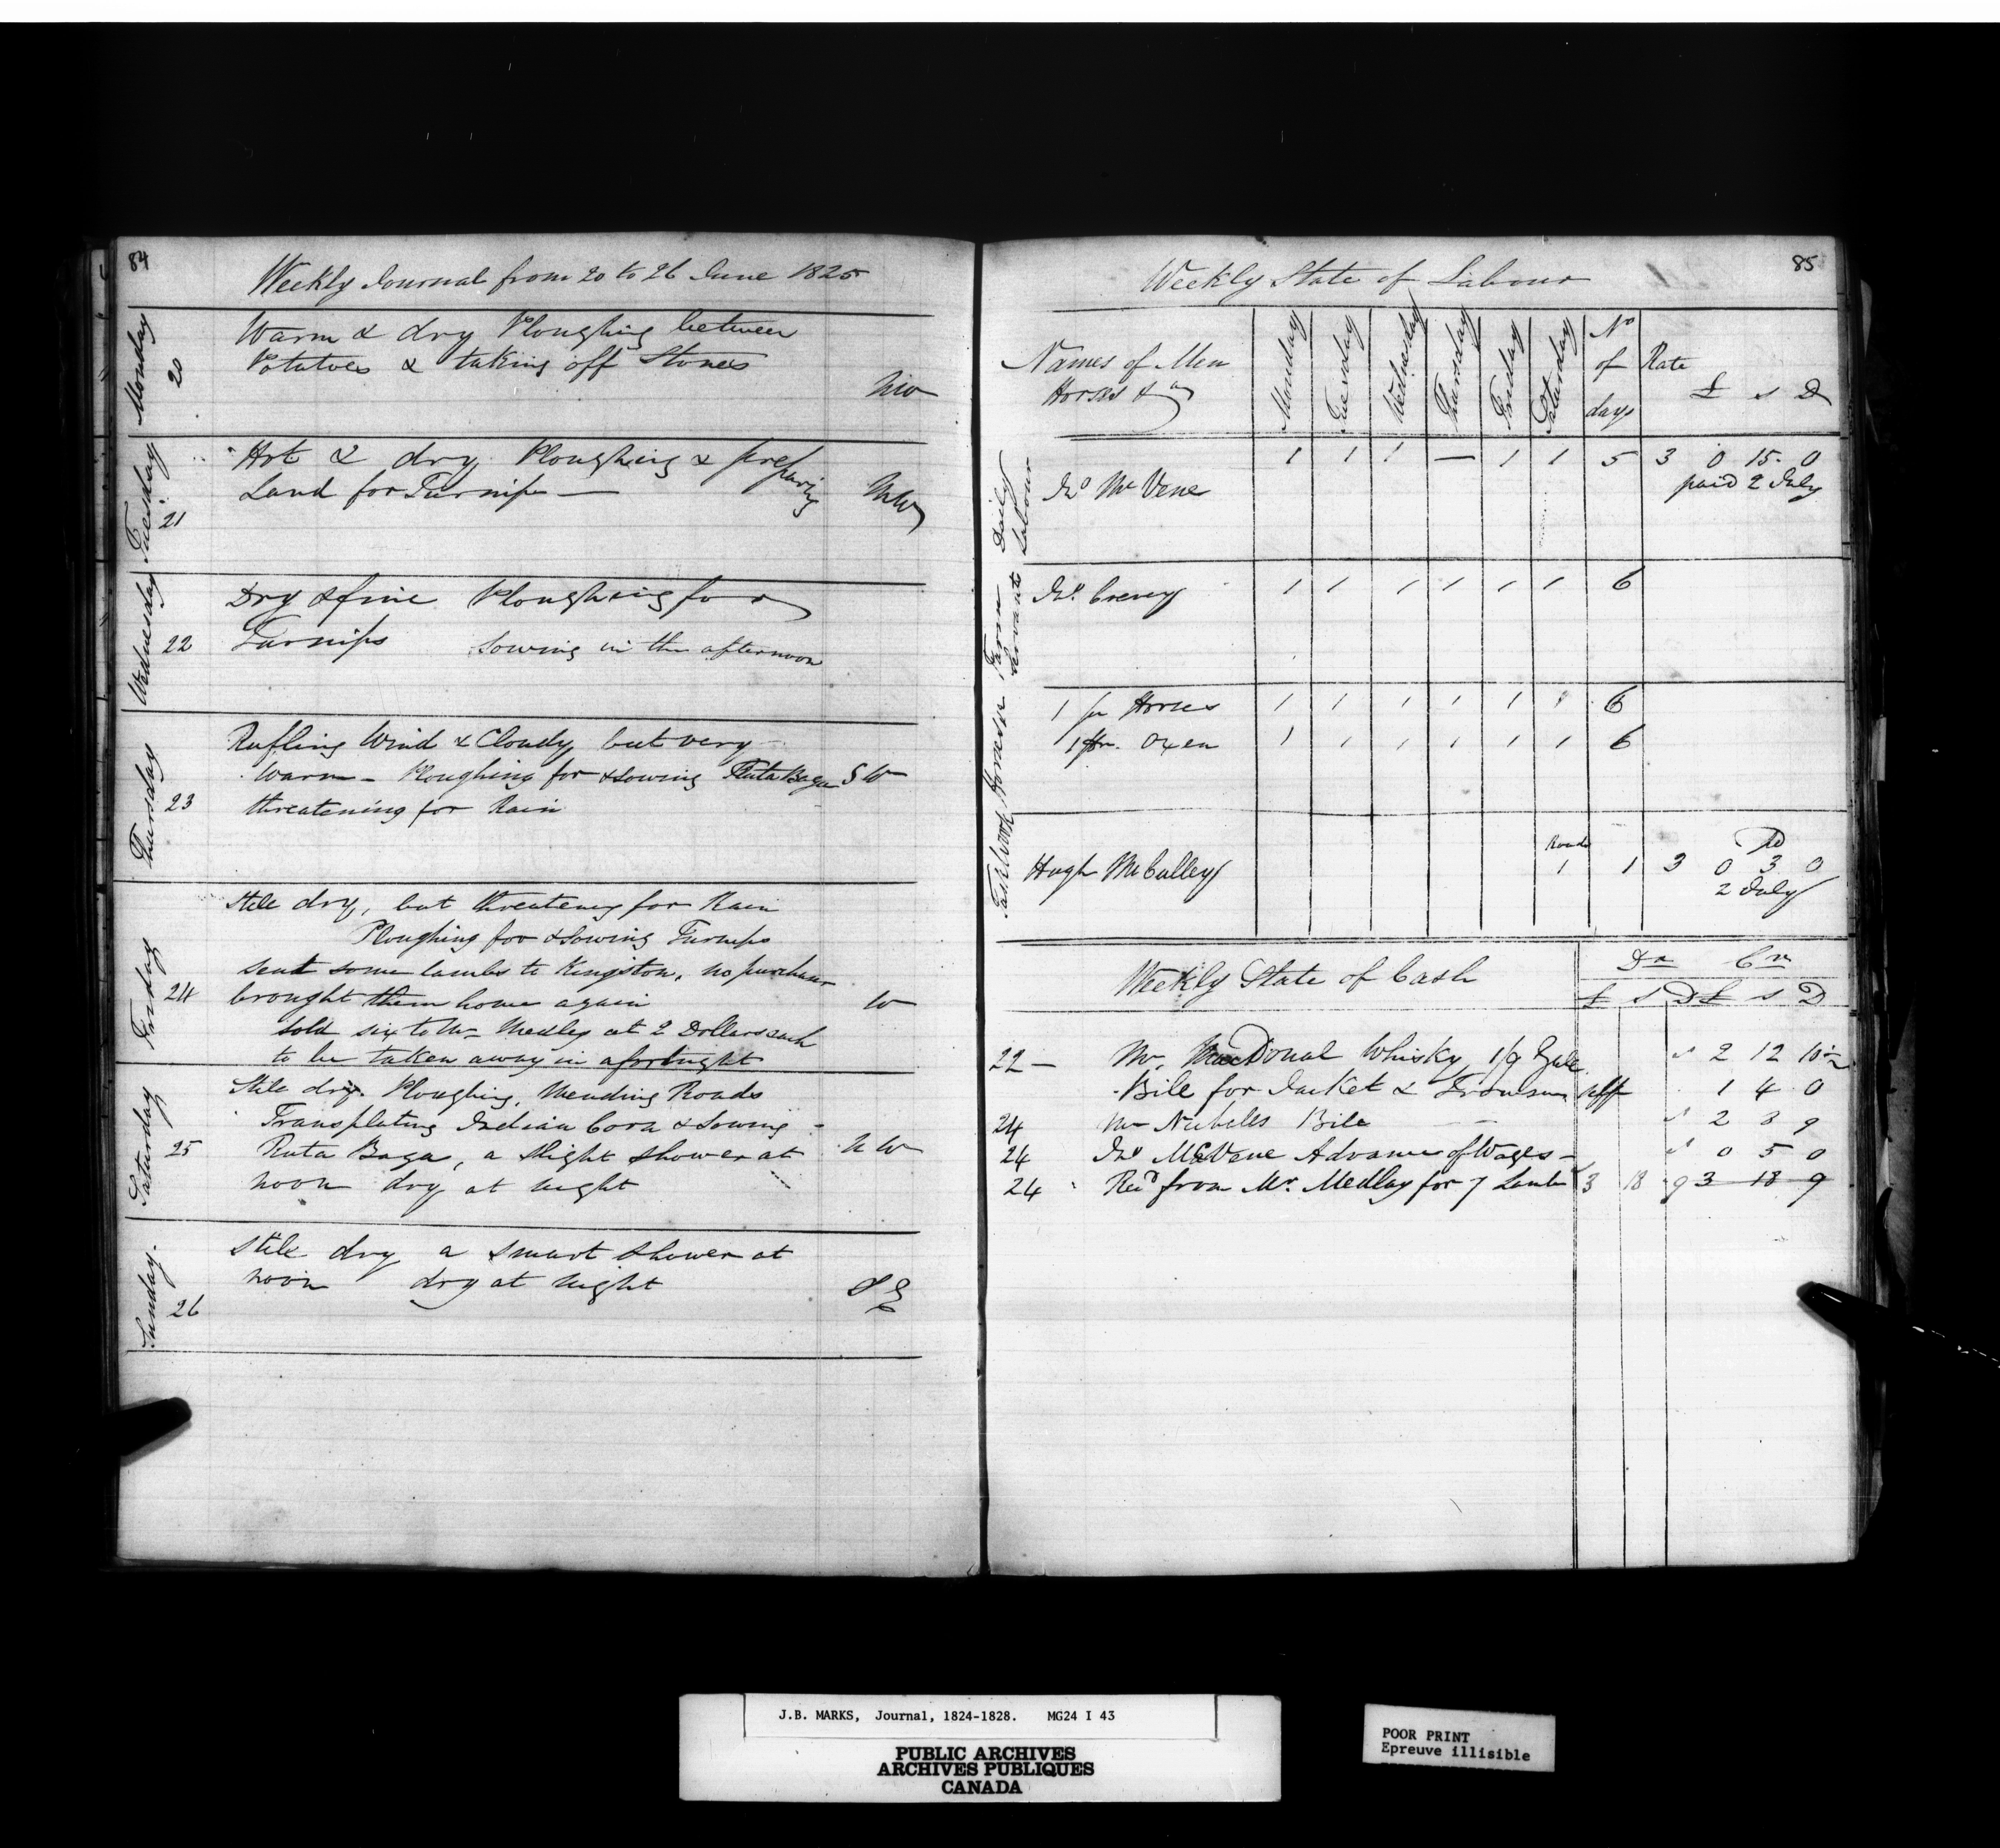 84
Weekly Journal from 20 to 26 June 1825
Monday 20
Warm & dry Ploughing between
Potatoes & taking off Stones
NW
Tuesday 21
Hot & dry Ploughing & preparing
Land for Turnips —
NW
Wednesday 22
Dry & fine Ploughing for
Turnips sowing in the afternoon
Thursday 23
Rufling Wind & Cloudy but very
warm - Ploughing for & sowing Ruta Baga SW
threatening for Rain
Friday 24
Still dry, but threatening for Rain
Ploughing for & sowing Turnips
sent some lambs to Kingston, no purchaser
brought them home again
W
sold six to Mr Medley at 2 Dollars each
to be taken away in a fortnight
Saturday 25
Still dry. Ploughing, Mending Roads
Transplating Indian Corn & sowing -
Ruta Baga, a slight shower at
NW
noon dry at night
Sunday. 26
Still dry a smart shower at
noon dry at night
SE
85
Weekly State of Labour
Names of Men Horses &c
Monday Tuesday Wednesday Thursday Friday Saturday No of days Rate £ s D
Daily Labour
Jno McVene 1 1 1 — 1 1 5 3 0 15 0
paid 2 July
Farm Servants
Jno Creevy 1 1 1 1 1 1 6
Horses &c
1 pr Horses 1 1 1 1 1 1 6
1 pr. Oxen 1 1 1 1 1 1 6
Task Work
Roads Pd
Hugh McCulley 1 1 3 0 3 0
2 July
Weekly State of Cash
Dr Cr
£ s D £ s D
22 — Mr. MacDonal Whisky 1/9 Gall. 2 12 10½
Bill for Jacket & Trowsers self 1 4 0
24 Mr Bill — 2 3 9
24 Jno McVene Advance of Wages - 0 5 0
24 Recd from Mr. Medley for 7 Lambs 3 18 9 3 18 9
J.B. MARKS, Journal, 1824-1828. MG24 I 43
PUBLIC ARCHIVES
ARCHIVES PUBLIQUES
CANADA
POOR PRINT
Epreuve illisible